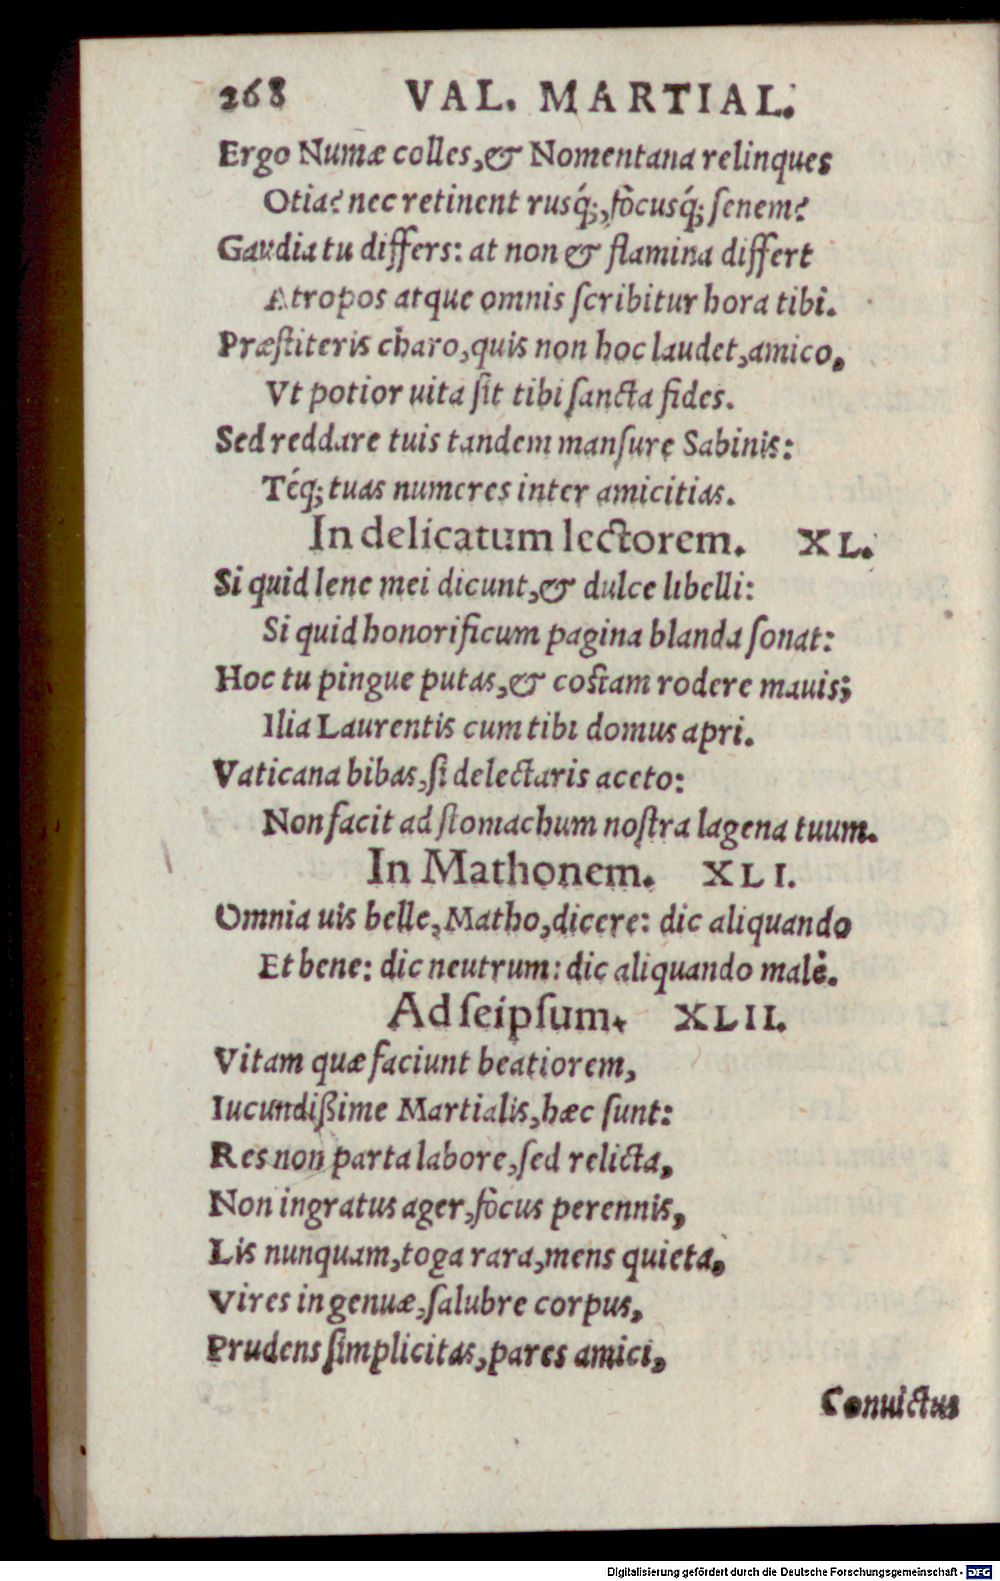 268 VAL. MARTIAL.
Ergo Numæ colles, & Nomentana relinques
Otia? nec retinent rusq́;, focusq́; ſenem?
Gaudia tu differs: at non & ſtamina differt
Atropos atque omnis ſcribitur hora tibi.
Præſtiteris charo, quis non hoc laudet, amico,
Vt potior uita ſit tibi ſancta fides.
Sed reddare tuis tandem manſure Sabinis:
Téq; tuas numeres inter amicitias.
In delicatum lectorem. XL.
Si quid lene mei dicunt, & dulce libelli:
Si quid honorificum pagina blanda ſonat:
Hoc tu pingue putas, & coſtam rodere mauis;
Ilia Laurentis cum tibi domus apri.
Vaticana bibas, ſi delectaris aceto:
Non facit ad ſtomachum noſtra lagena tuum.
In Mathonem. XLI.
Omnia uis belle, Matho, dicere: dic aliquando
Et bene: dic neutrum: dic aliquando malè.
Ad ſeipſum. XLII.
Vitam quæ faciunt beatiorem,
Iucundißime Martialis, hæc ſunt:
Res non parta labore, ſed relicta,
Non ingratus ager, focus perennis,
Lis nunquam, toga rara, mens quieta,
Vires ingenuæ, ſalubre corpus,
Prudens ſimplicitas, pares amici,
Conuictus
Digitalisierung gefördert durch die Deutsche Forschungsgemeinschaft - DFG